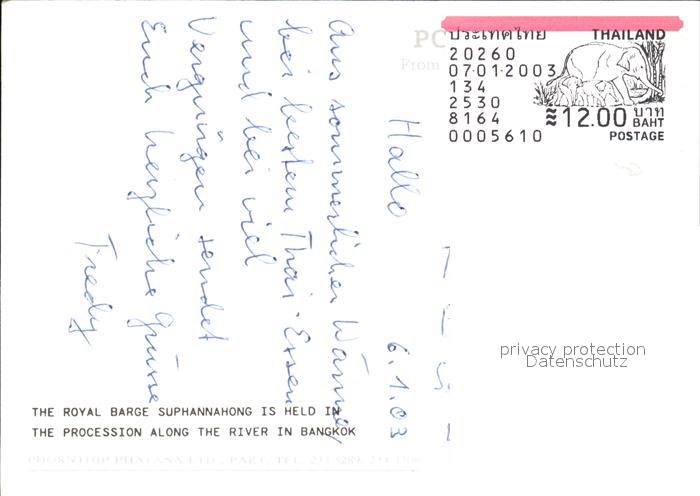 ประเทศไทย THAILAND
20260
07·01·2003
134
2530
8164
0005610
≋12.00 บาท BAHT
POSTAGE
PC
From
Hallo 6.1.03
Aus sommerlicher Wärme,
bei bestem Thai-Essen
und bei viel
Vergnügen sendet
Euch herzliche Grüsse
Fredy
privacy protection
Datenschutz
THE ROYAL BARGE SUPHANNAHONG IS HELD IN
THE PROCESSION ALONG THE RIVER IN BANGKOK
PHORNTHIP PHATANA LTD., PART. TEL.